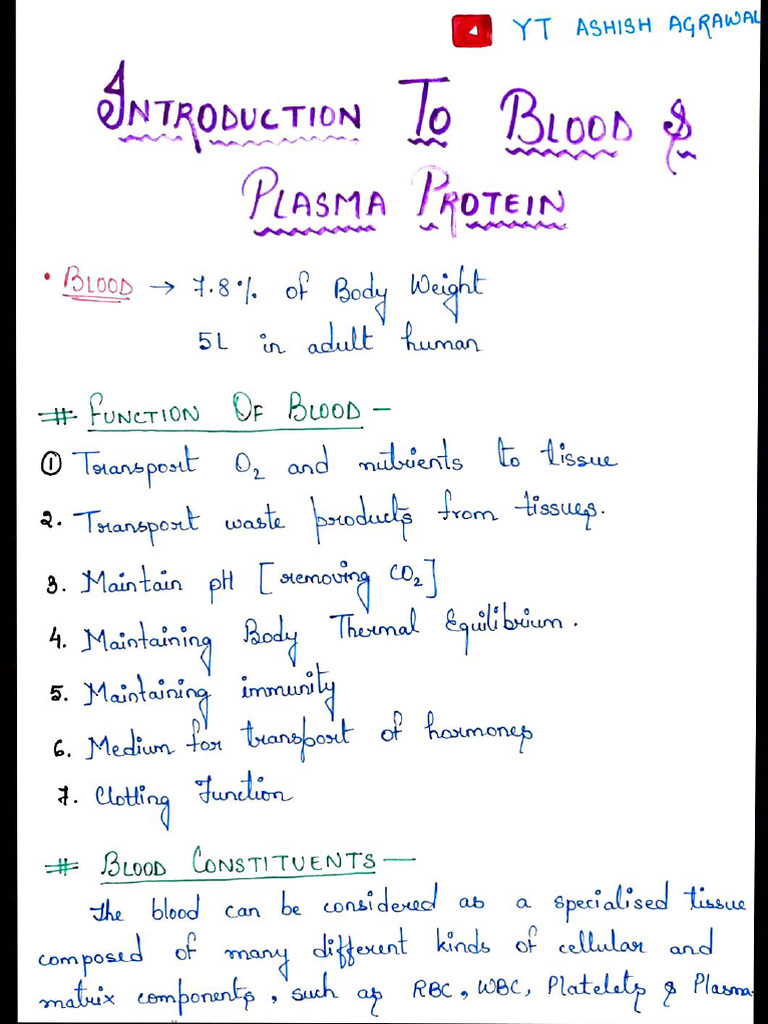 YT ASHISH AGRAWAL
INTRODUCTION TO BLOOD &
PLASMA PROTEIN
• BLOOD → 7.8% of Body Weight
5L in adult human
# FUNCTION OF BLOOD –
① Transport O₂ and nutrients to tissue
2. Transport waste products from tissues.
3. Maintain pH [removing CO₂]
4. Maintaining Body Thermal Equilibrium.
5. Maintaining immunity
6. Medium for transport of hormones
7. Clotting Function
# BLOOD CONSTITUENTS —
The blood can be considered as a specialised tissue
composed of many different kinds of cellular and
matrix components, such as RBC, WBC, Platelets & Plasma